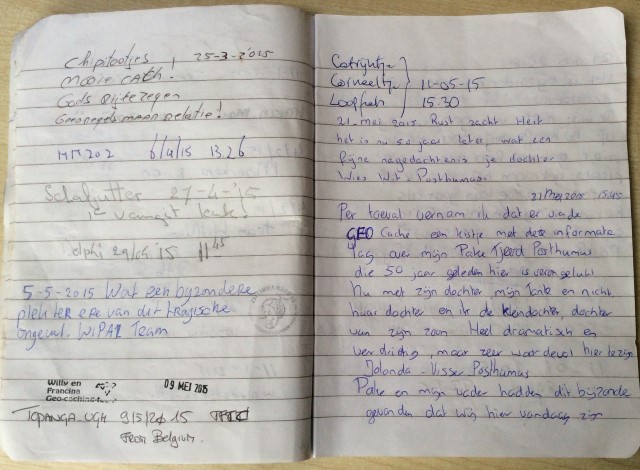 Chipitootjes, 25-3-2015
mooie CACH.
Gods rijke zegen
MM202 6/4/15 1326
Schaljutter 27-4-'15
1e vanuit
elphi 29/04 '15 11:45
5-5-2015 Wat een byzondere
plek ter ere van dit tragische
ongeval. WiPAL Team
Willy en
Francine
Geo-caching
09 MEI 2015
TOPANGA-UGH 9/5/2015
From Belgium.
Catrijntje
Corneeltje
Loopfien
11-05-15
15.30
21 mei 2015 Rust zacht Heit
het is nu 50 jaar later, wat een
fijne nagedachtenis je dochter
Wies Wit-Posthumus.
21 Mei 2015 15.45
Per toeval vernam ik dat er via de
GEO Cache een kistje met deze informatie
lag over mijn Pake Tjeerd Posthumus
die 50 jaar geleden hier is verongelukt
Nu met zijn dochter, mijn tante en nicht
haar dochter en ik de kleindochter, dochter
van zijn zoon Heel dramatisch en
verdrietig, maar zeer waardevol hier te zijn
Jolanda-Visser Posthumus
Pake en mijn vader hadden dit bijzonder
gevonden dat wij hier vandaag zijn